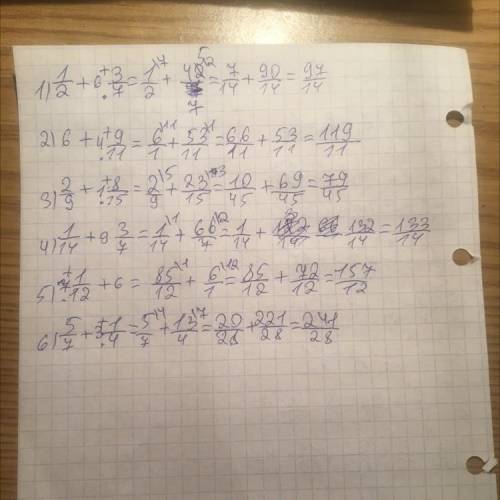 1) 1/2 + 6 3/7 = 1/2 + 45/7 = 7/14 + 90/14 = 97/14
2) 6 + 4 9/11 = 6/1 + 53/11 = 66/11 + 53/11 = 119/11
3) 2/9 + 1 8/15 = 2/9 + 23/15 = 10/45 + 69/45 = 79/45
4) 1/14 + 9 3/7 = 1/14 + 66/7 = 1/14 + 132/14 = 133/14
5) 7 1/12 + 6 = 85/12 + 6/1 = 85/12 + 72/12 = 157/12
6) 5/7 + 3 1/4 = 5/7 + 13/4 = 20/28 + 221/28 = 241/28